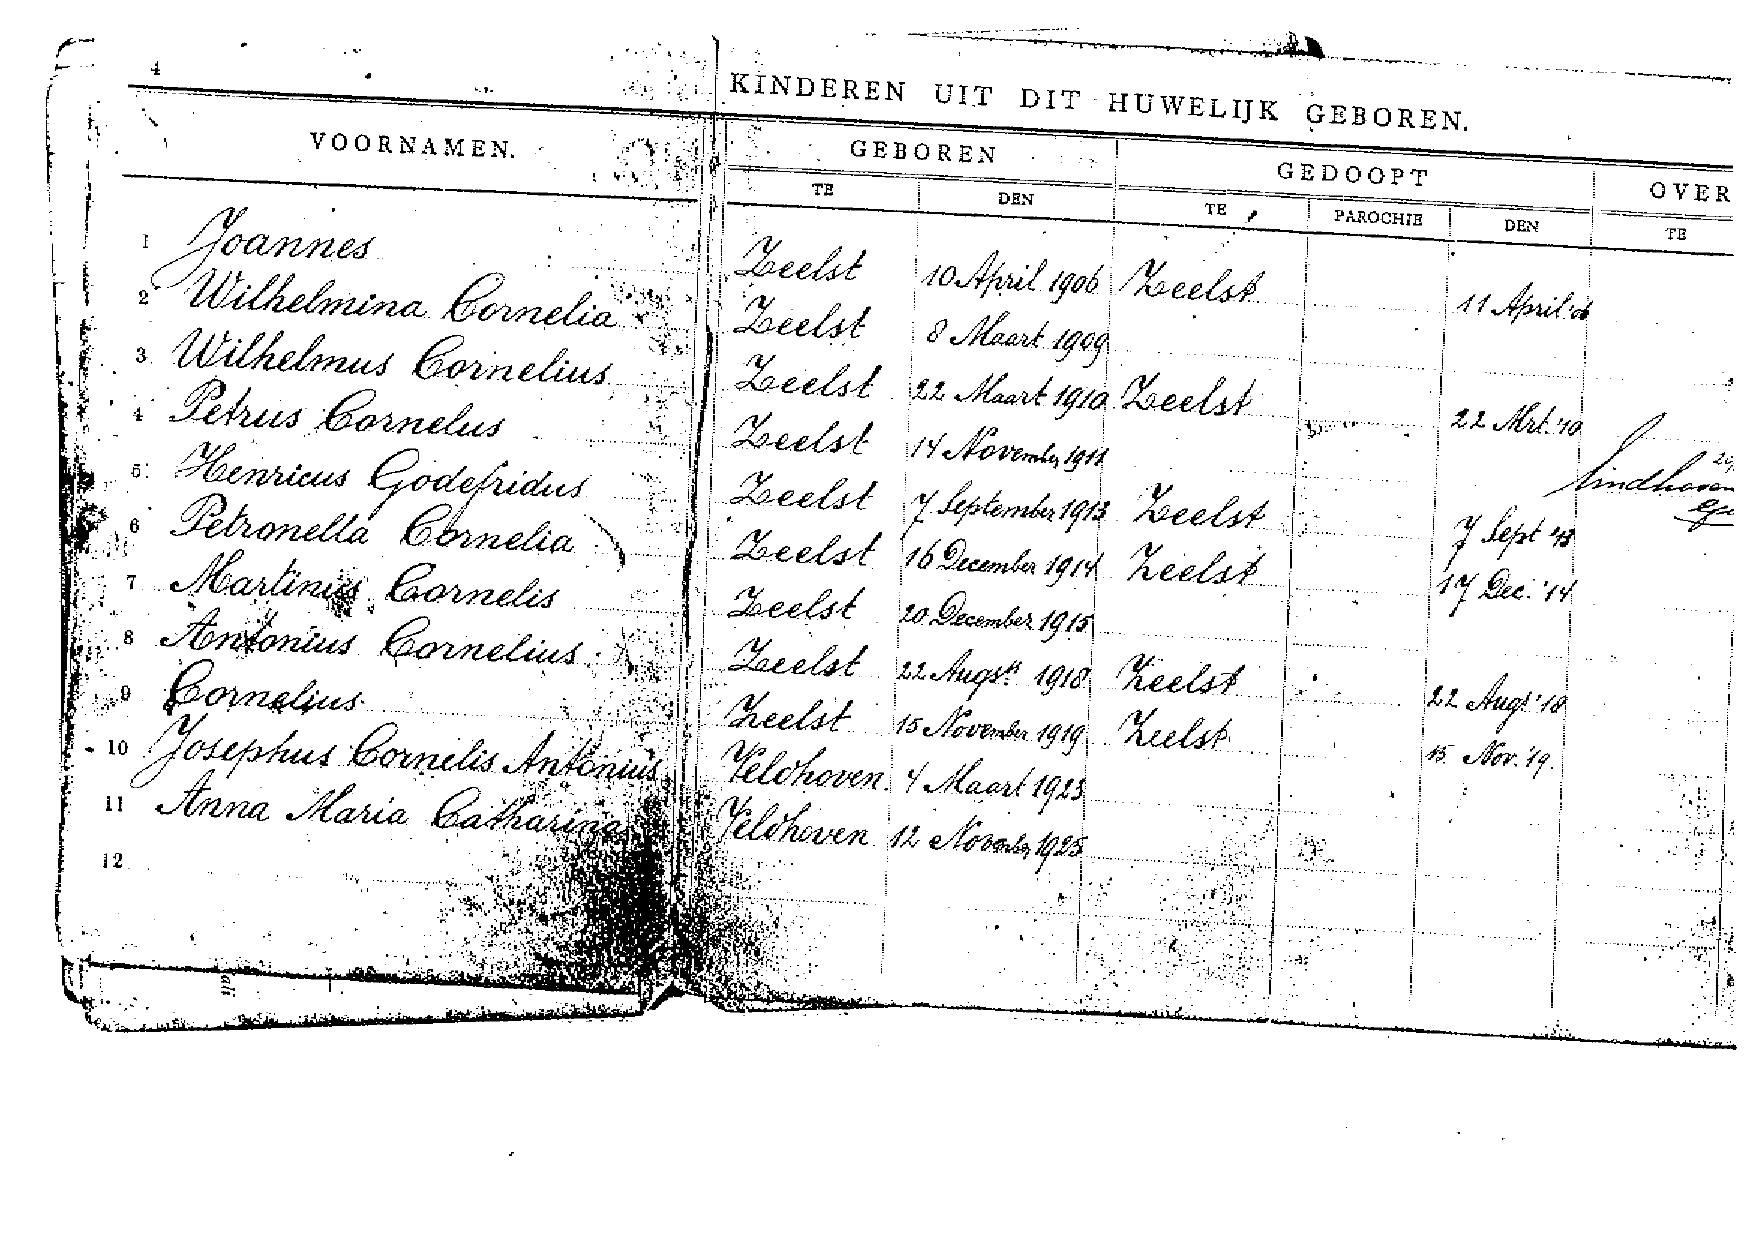 4
KINDEREN UIT DIT HUWELIJK GEBOREN.
VOORNAMEN. GEBOREN GEDOOPT OVER
TE DEN TE PAROCHIE DEN TE
1 Joannes Zeelst 10 April 1906 Zeelst 11 April '06
2 Wilhelmina Cornelia Zeelst 8 Maart 1909
3 Wilhelmus Cornelius Zeelst 22 Maart 1910 Zeelst 22 Mrt. '10
4 Petrus Cornelus Zeelst 14 November 1911
5 Henricus Godefridus Zeelst 7 September 1913 Zeelst 7 Sept '13
6 Petronella Cornelia Zeelst 16 December 1914 Zeelst 17 Dec. '14
7 Martinus Cornelis Zeelst 20 December 1915
8 Antonius Cornelius Zeelst 22 Augst 1918 Zeelst 22 Augs '18
9 Cornelius Zeelst 15 November 1919 Zeelst 15 Nov. '19.
10 Josephus Cornelis Antonius Veldhoven 4 Maart 1923
11 Anna Maria Catharina Veldhoven 12 November 1925
12